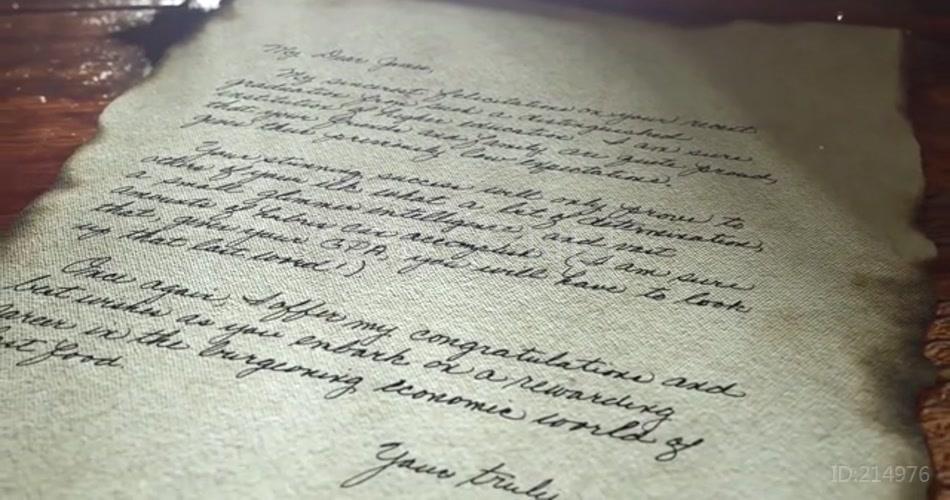 My Dear
My sincerest felicitations on your recent
graduation from such a distinguished
institution of higher education. I am sure
that your friends and family are quite proud,
given their previously low expectations.
Your stunning success will only prove to
others of your ilk what a bit of determination,
a small glimmer intelligence, and
amounts of hubris can accomplish. (I am sure
that, given your GPA, you will have to look
up that last word!)
Once again, I offer my congratulations and
best wishes as you embark on a rewarding
career in the burgeoning economic world of
fast food.
Yours truly
ID:214976